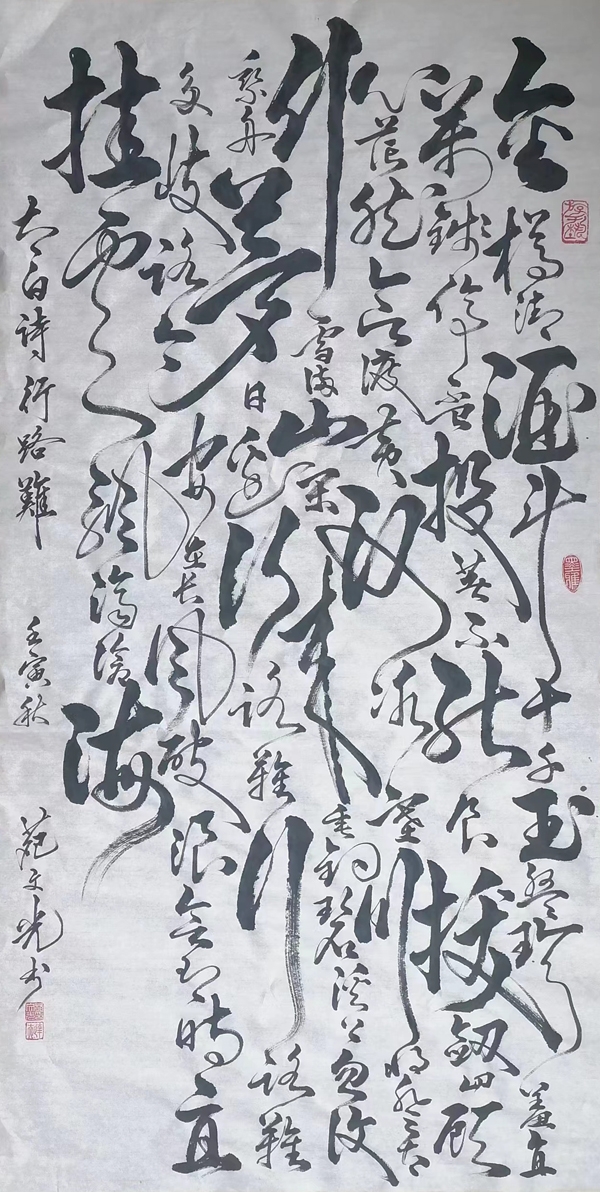 金樽清酒斗十千玉盤珍羞直
萬錢停杯投箸不能食拔劍四顧
心茫然欲渡黃河冰塞川將登太
行雪滿山閑來垂釣碧溪上忽復
乘舟夢日邊行路難行路難
多歧路今安在長風破浪會有時直
挂雲帆濟滄海
太白詩行路難 壬寅秋 范文光书